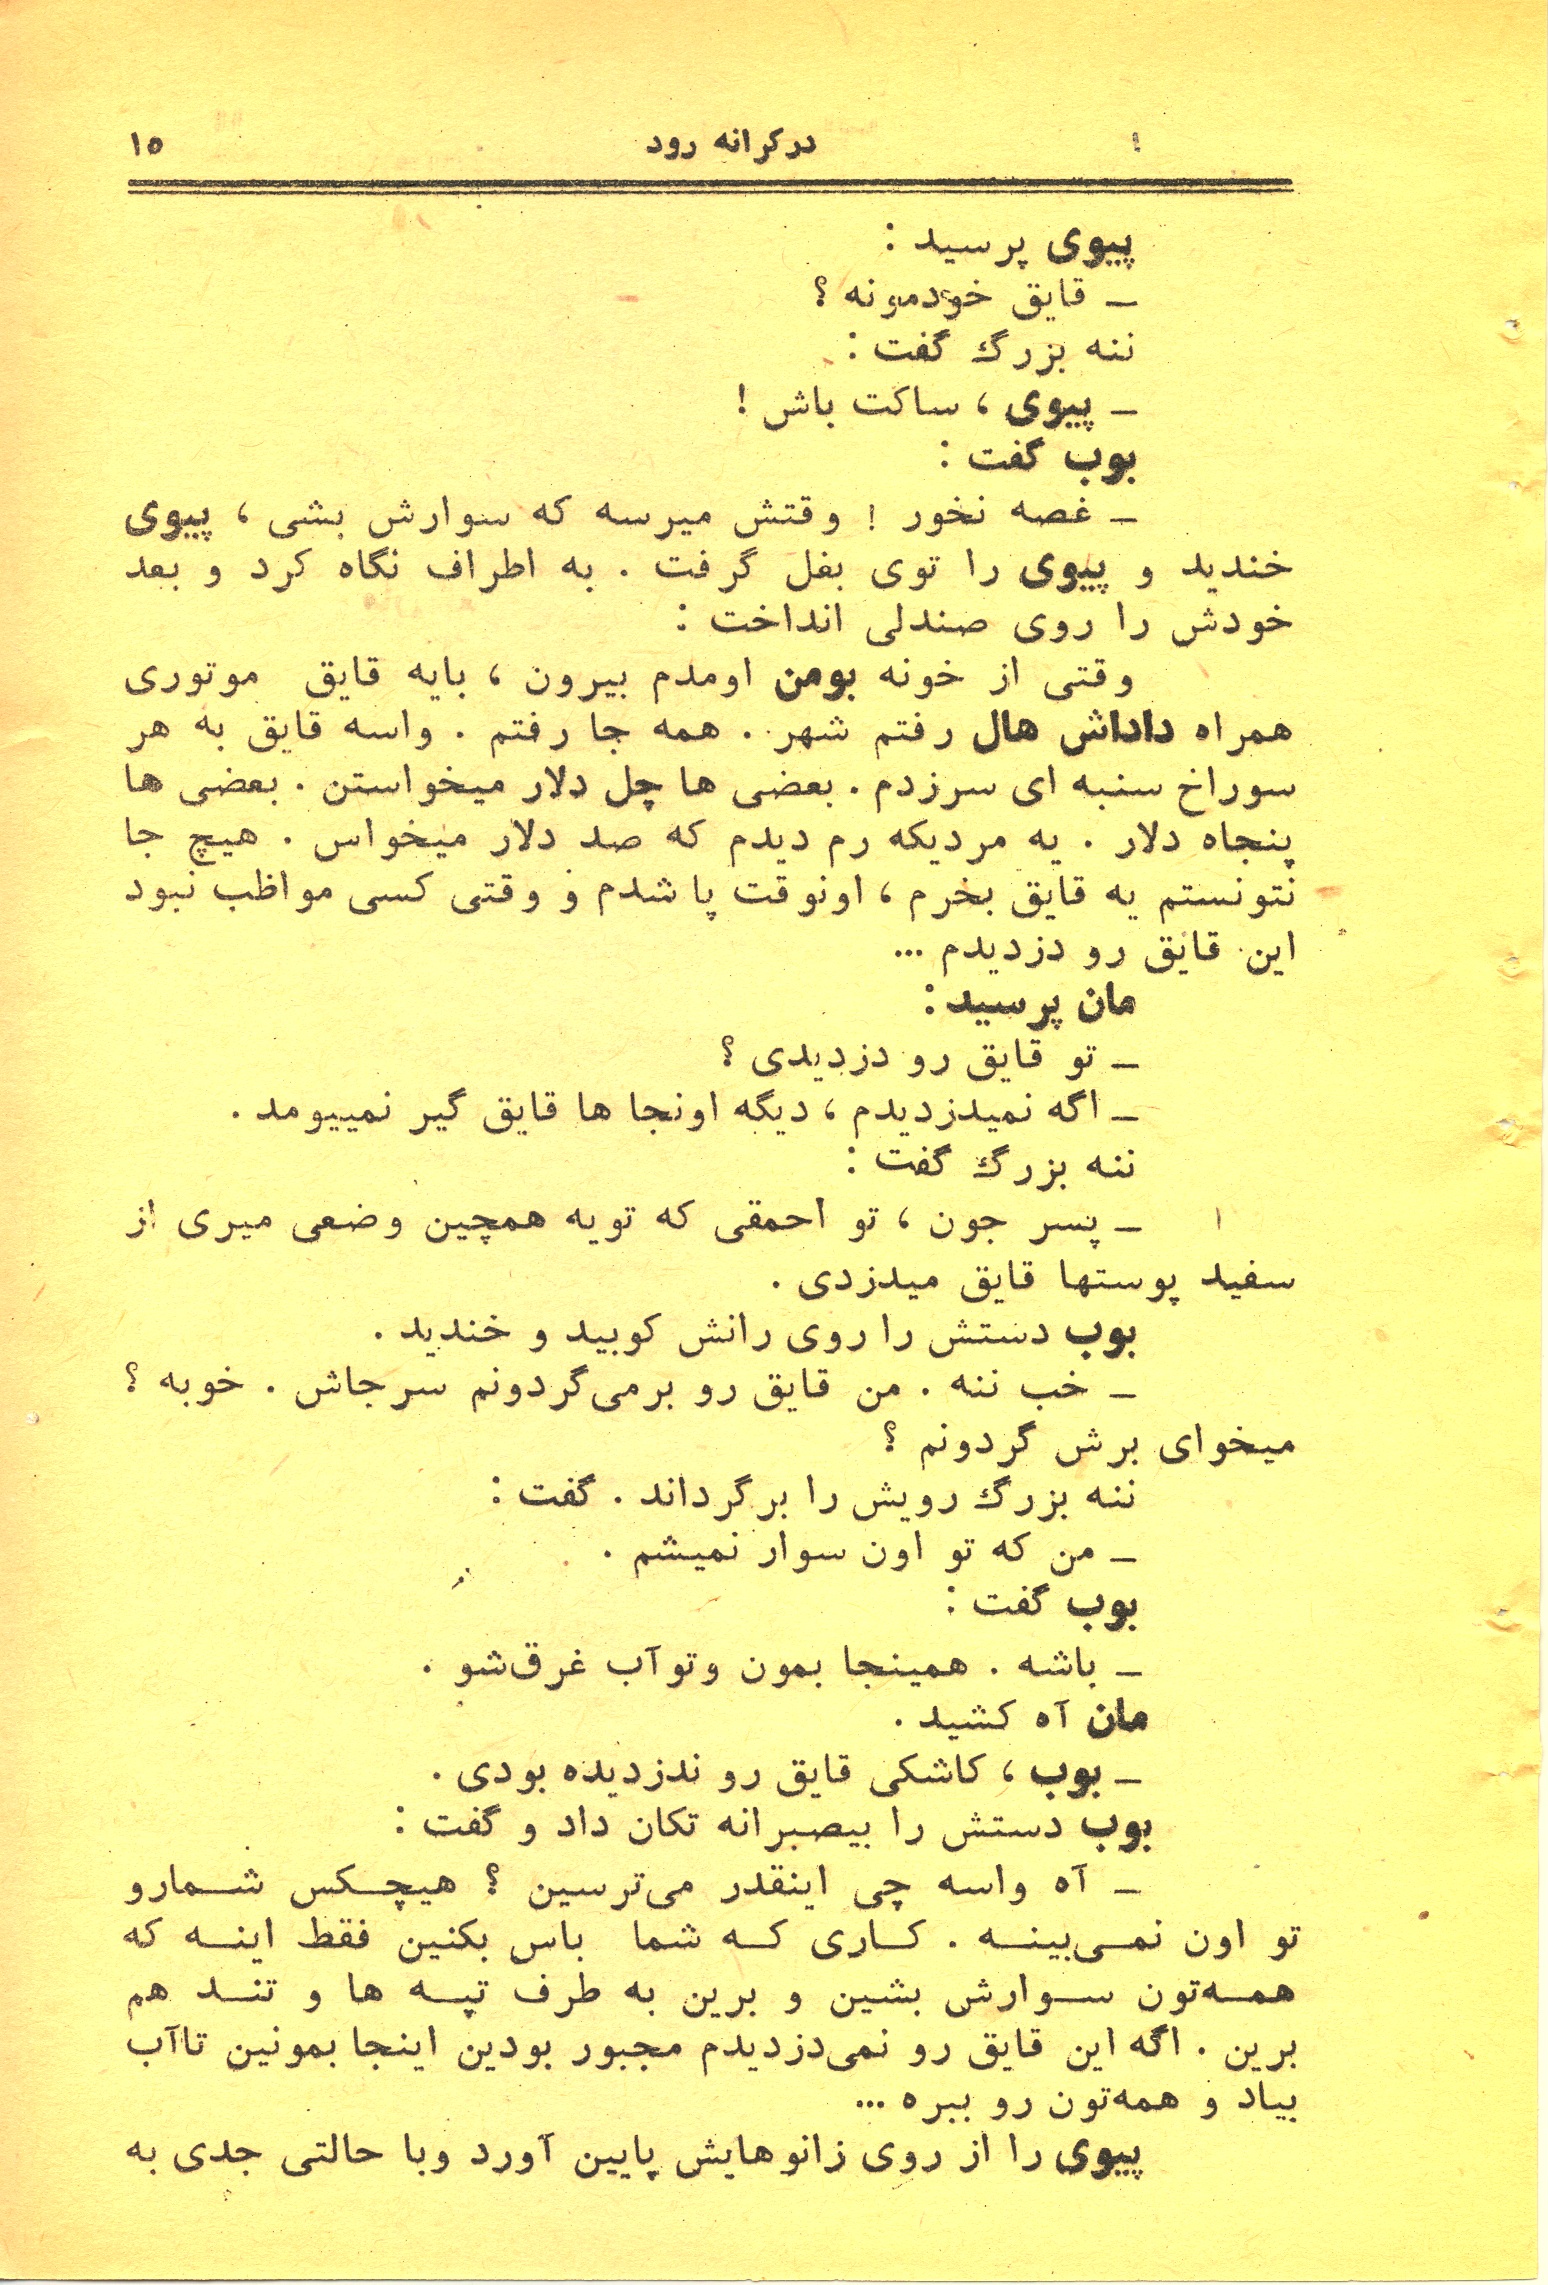 درکرانه رود ۱۵
پیوی پرسید :
ـ قایق خودمونه ؟
ننه بزرگ گفت :
ـ پیوی ، ساکت باش !
بوب گفت :
ـ غصه نخور ! وقتش میرسه که سوارش بشی ، پیوی
خندید و پیوی را توی بغل گرفت . به اطراف نگاه کرد و بعد
خودش را روی صندلی انداخت :
وقتی از خونه بومن اومدم بیرون ، بایه قایق موتوری
همراه داداش هال رفتم شهر . همه جا رفتم . واسه قایق به هر
سوراخ سنبه ای سرزدم . بعضی ها چل دلار میخواستن . بعضی ها
پنجاه دلار . یه مردیکه رم دیدم که صد دلار میخواس . هیچ جا
نتونستم یه قایق بخرم ، اونوقت پا شدم و وقتی کسی مواظب نبود
این قایق رو دزدیدم ...
مان پرسید :
ـ تو قایق رو دزدیدی ؟
ـ اگه نمیدزدیدم ، دیگه اونجا ها قایق گیر نمییومد .
ننه بزرگ گفت :
ـ پسر جون ، تو احمقی که تویه همچین وضعی میری از
سفید پوستها قایق میدزدی .
بوب دستش را روی رانش کوبید و خندید .
ـ خب ننه . من قایق رو برمی‌گردونم سرجاش . خوبه ؟
میخوای برش گردونم ؟
ننه بزرگ رویش را برگرداند . گفت :
ـ من که تو اون سوار نمیشم .
بوب گفت :
ـ باشه . همینجا بمون وتوآب غرق‌شو .
مان آه کشید .
ـ بوب ، کاشکی قایق رو ندزدیده بودی .
بوب دستش را بیصبرانه تکان داد و گفت :
ـ آه واسه چی اینقدر می‌ترسین ؟ هیچکس شمارو
تو اون نمی‌بینه . کاری که شما باس بکنین فقط اینه که
همه‌تون سوارش بشین و برین به طرف تپه ها و تند هم
برین . اگه این قایق رو نمی‌دزدیدم مجبور بودین اینجا بمونین تاآب
بیاد و همه‌تون رو ببره ...
پیوی را از روی زانوهایش پایین آورد وبا حالتی جدی به